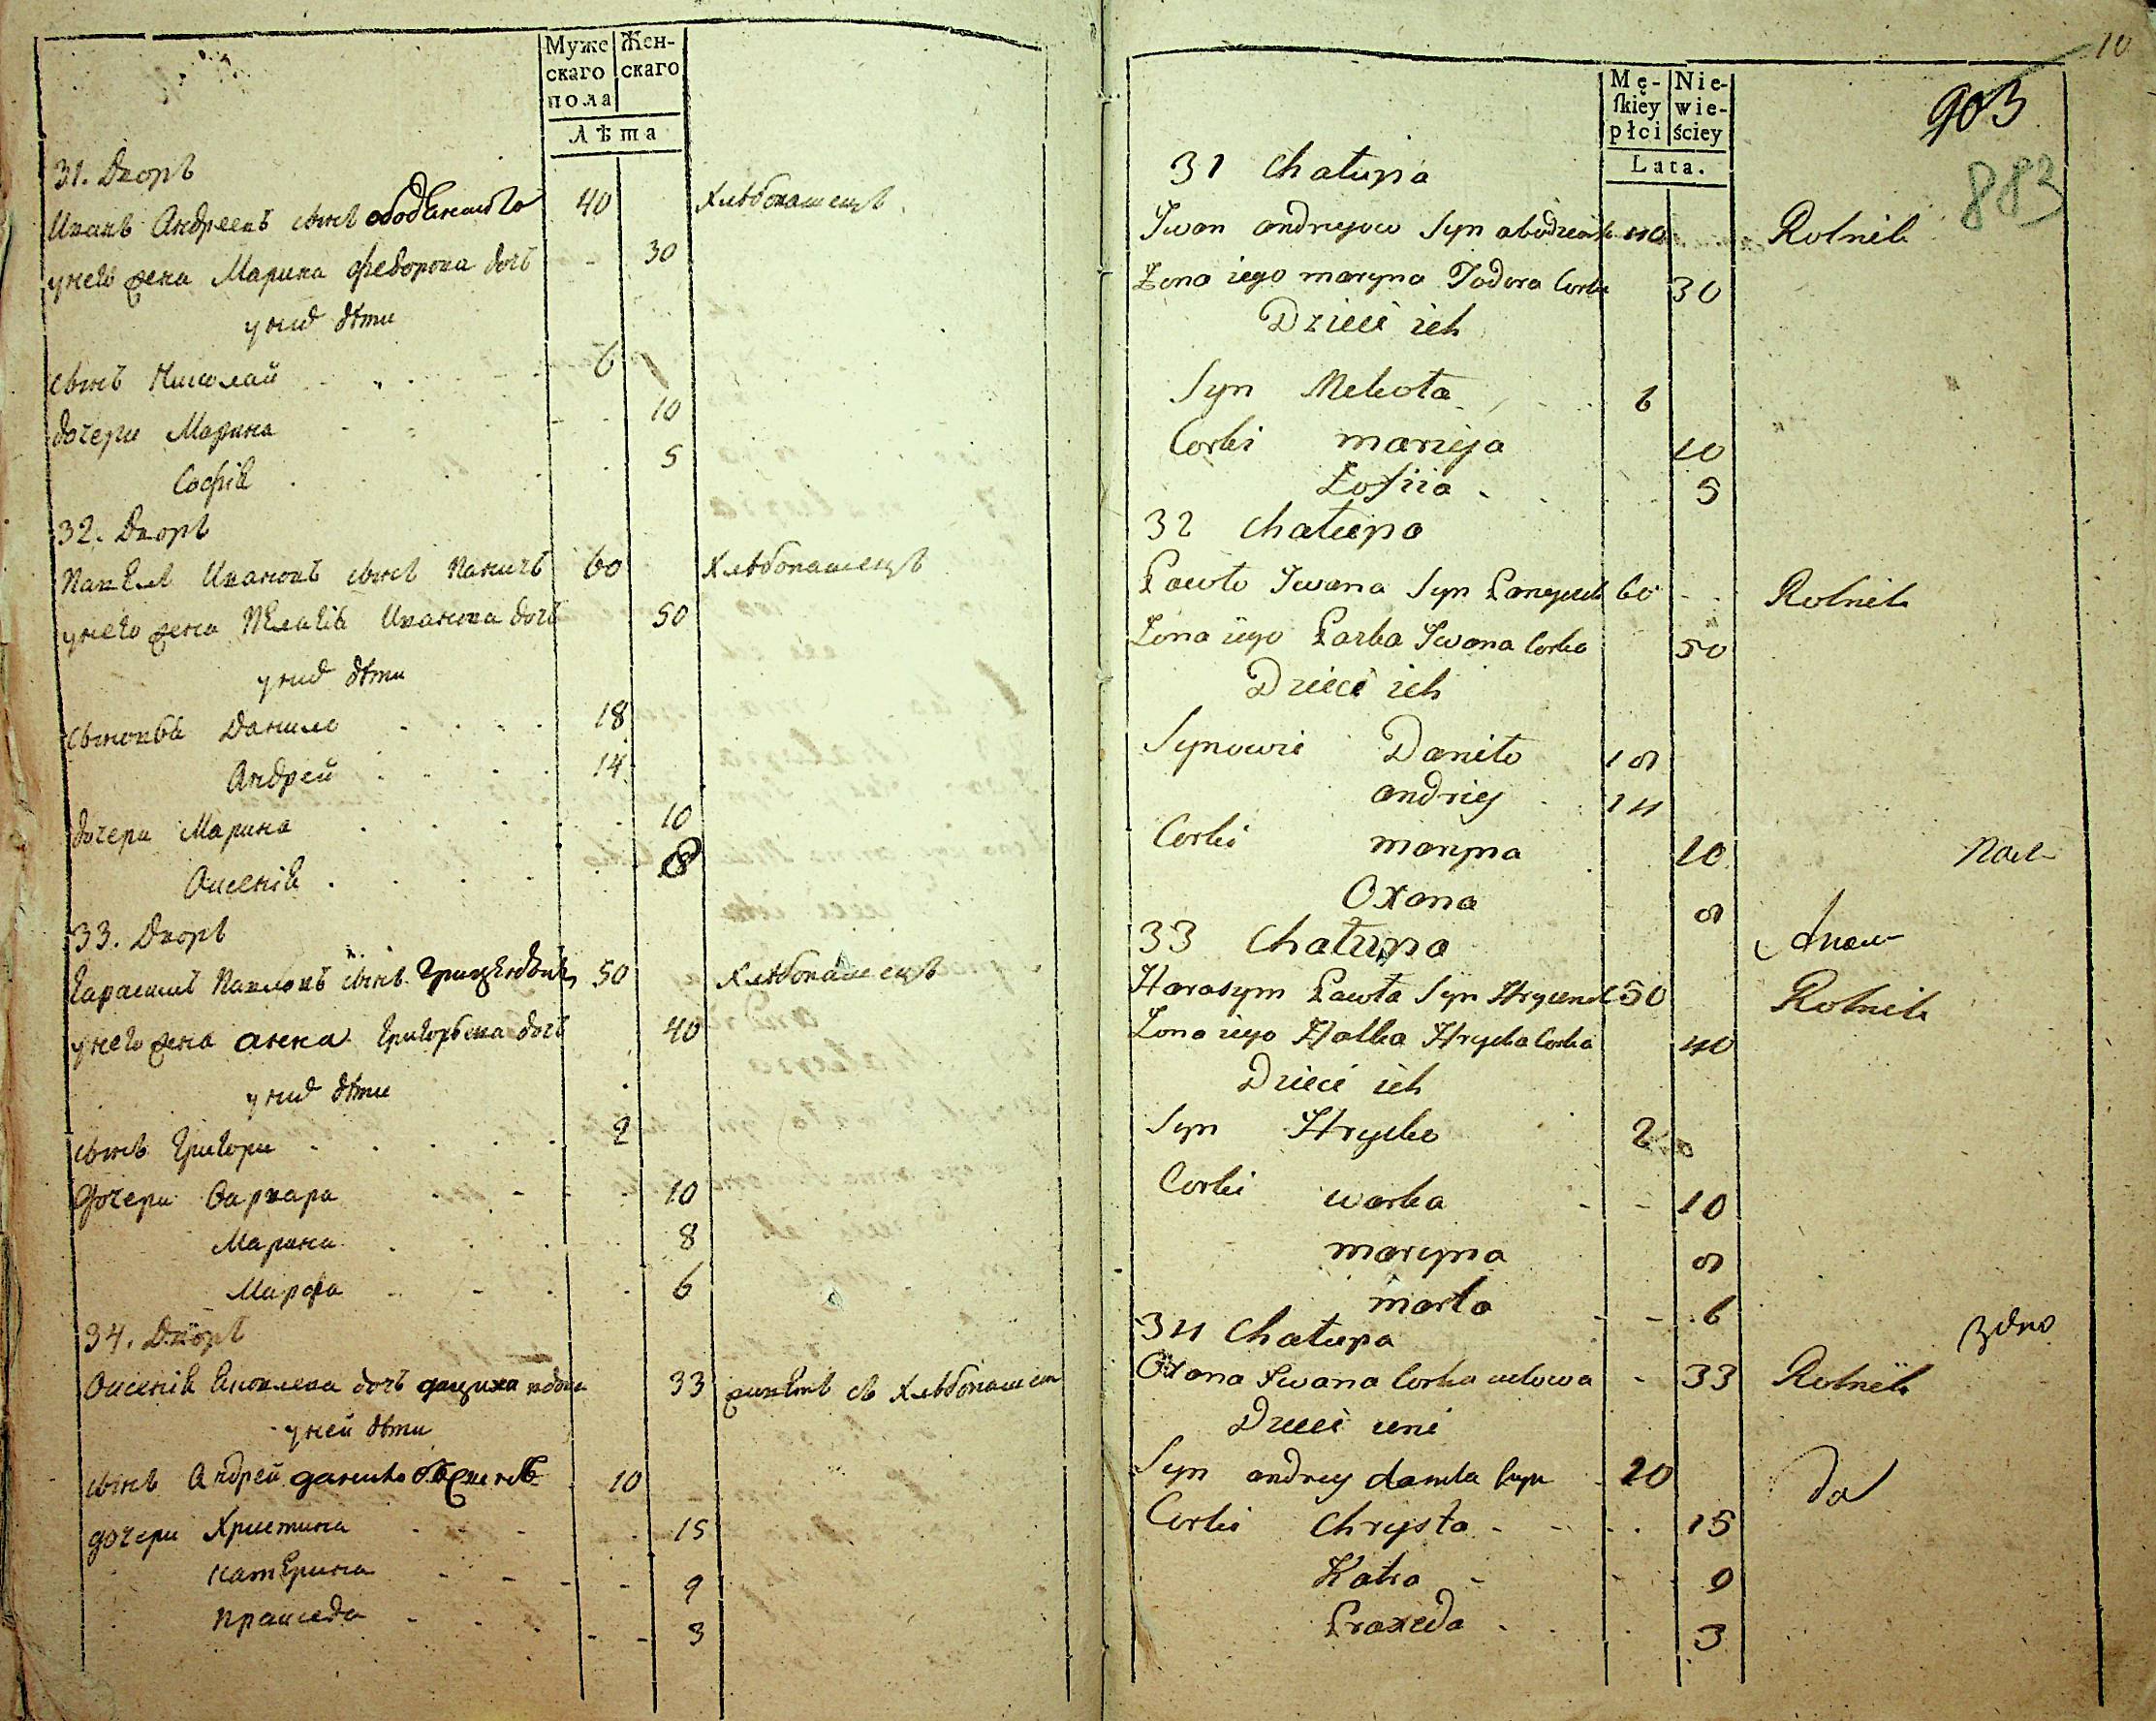 Муже
скаго
пола
Жен-
скаго
Лѣта
31. Дворъ
Иванъ Андреевъ сынъ 40 Хлѣбопашецъ
у него жена Марина Федорова дочь 30
у них дѣти
сынъ Николай 6
дочери Марина 10
Софія 5
32. Дворъ
Павелъ Ивановъ сынъ Паничъ 60 Хлѣбопашецъ
у него жена Пелагія Иванова дочь 50
у них дѣти
сыновья Данило 18
Андрей 14
дочери Марина 10
Оксенія 8
33. Дворъ
Гарасимъ Павловъ сынъ 50 Хлѣбопашецъ
у него жена анна Григорьева дочь 40
у них дѣти
сынъ Григори 2
дочери Варвара 10
Марина 8
Марфа 6
34. Дворъ
Оксенія дочь вдова 33 живетъ съ Хлѣбопаше
у ней дѣти
сынъ Андрей 10
дочери Христина 15
катерина 9
пракседа 3
10
Mę-
skiey
płci
Nie-
wie-
ściey
Lata.
903
883
31 Chałupa
Iwan andryow Syn 40 Rolnik
Żona iego maryna Todora Corka 30
Dzieci ich
Syn Mekoła 6
Corki marieja 10
Zofiia 5
32 Chałupa
Pawło Iwana Syn 60 Rolnik
Żona iego Pazka Iwana Corka 50
Dzieci ich
Synowie Daniło 18
andriej 14
Corki maryna 10
Oxana 8
33 Chałupa
Harasym Pawła Syn 50 Rolnik
Żona iego Halka Hrycka Corka 40
Dzieci ich
Syn Hrycko 2
Corki warka 10
maryna 8
marta 6
34 Chałupa
Oxana Iwana Corka wdowa 33 Rolnik
Dzieci
Syn andrey daniła syn 10
Corki Chrysta 15
Katra 9
Praxeda 3